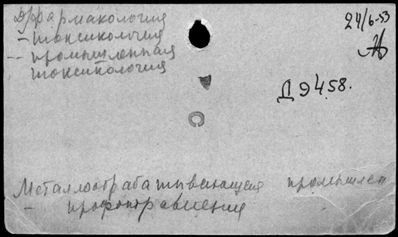 Фармакология
24/6-53
- токсикология
- промышленная
токсикология
Д 9458.
Металлообрабатывающая промышлен
- профотравления